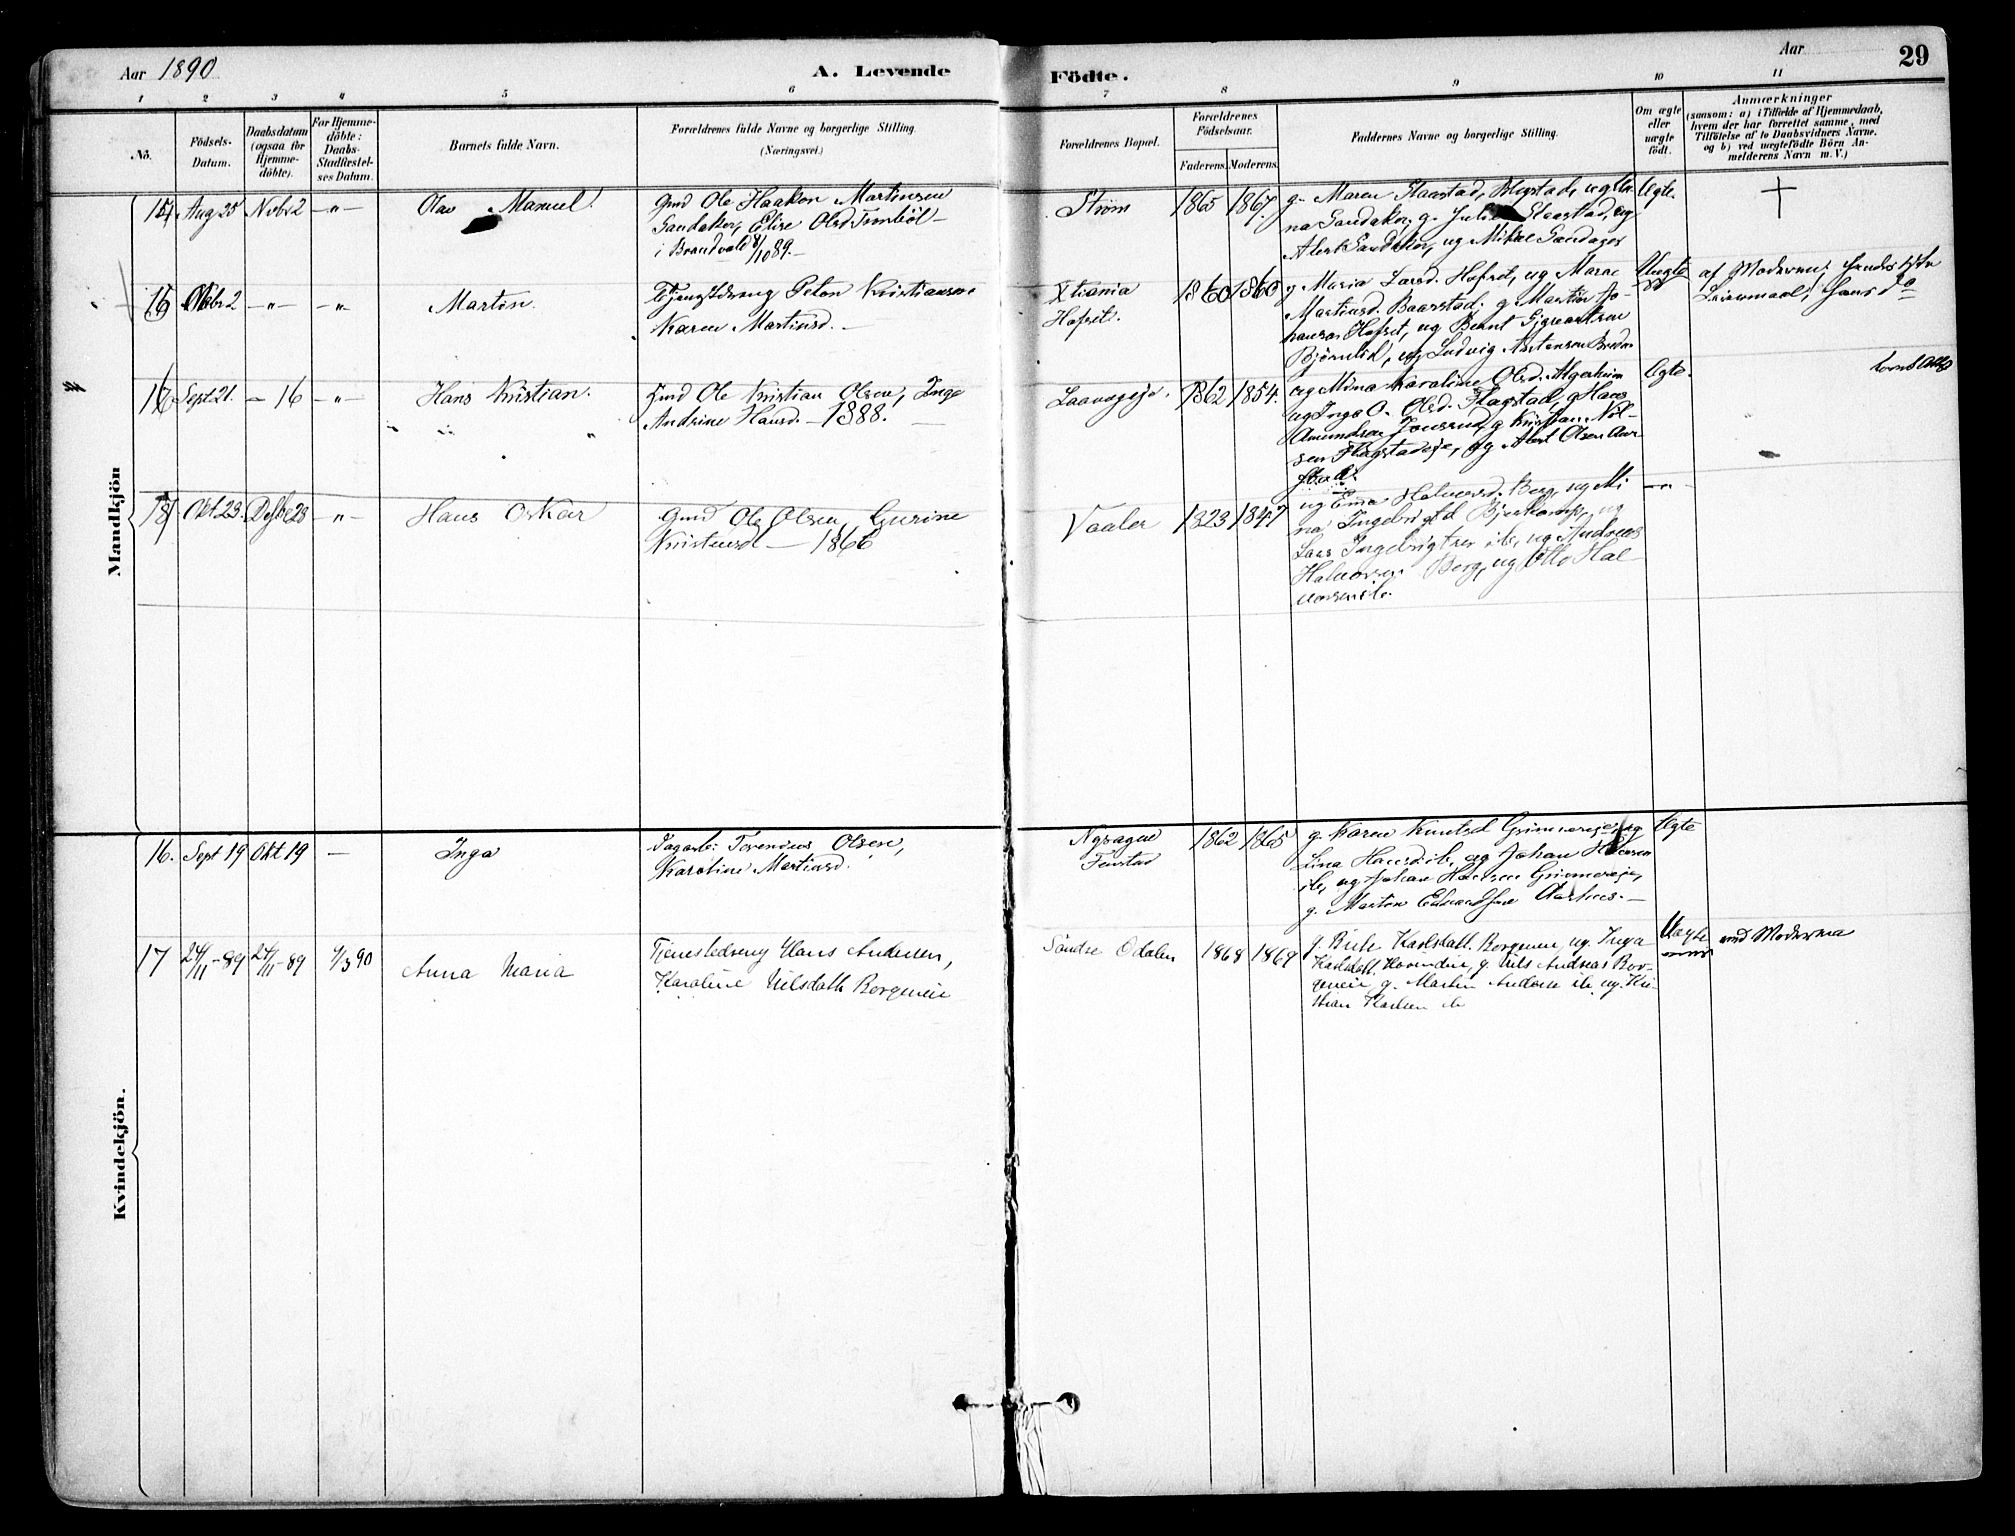 Aar 1890
A. Levende
Födte.
Aar
29
1 2 3 4 5 6 7 8 9 10 11
No.
Födsels-
Datum.
Daabsdatum
(ogsaa for
Hjemme-
döbte).
For Hjemme-
döbte:
Daabs-
Stadfæstel-
ses Datum.
Barnets fulde Navn.
Forældrenes fulde Navne og borgerlige Stilling.
(Næringsvei.)
Forældrenes Bopæl.
Forældrenes
Födselsaar.
Faderens. Moderens.
Faddernes Navne og borgerlige Stilling.
Om ægte
eller
uægte
födt.
Anmærkninger
(saasom: a) i Tilfælde af Hjemmedaab,
hvem der har forrettet samme, med
Tilföielse af to Daabsvidners Navne.
og b) ved uægtefödte Börn An-
melderens Navn m. V.)
Mandkjön
15 Aug 25 Nvbr 2 -"- Olav Manuel. Gmd Ole Haakon Martinsen
Sandaker, Elise Olsd.
i Brandvold 8/10 89.-
Strøm 1865 1867. g. Maren Slaastad,
na Sandaker, g. Julie Slaastad, ug
Albert Sandaker, ug Mikal Sandager
Ægte. +
16 Oktbr 2 -"- -"- Marten. Tjenestdreng Peter Kristiansen
Karen Martinsd. -
Xtiania
Hofset.
1860 1860 g Maria Larsd. Hofset, ug Maren
Martinsd. Baarstad. g Martin Jo-
hansen Hofset, ug Bernt
Björnlid, ug Ludvig
Uægte
af Moderen; hendes 1ste
Leiermaal, hans do
17 Sept 21. - 16 -"- Hans Kristian. Gmd Ole Kristian Olsen, Inge
Andrine Hansd. - 1888. -
1862 1854. ug Mina Karoline Olsd. Algarheim
ug Inga O. Olsd. Flagstad, g Hans
Amundsen g Kristian Nil-
sen Flagstadeje, ug Albert Olsen
Ægte.
18 Okt 23. Dsbr 28 -"- Hans Oskar Gmd Ole Olsen, Gurine
Kristensd - 1866
Vaaler 1823 1847 ug Ema Halvorsd. Berg, ug Mi
na Ingebrigtsd Bjerkamp, ug
Lars Ingebrigtsen ib, ug Andreas
Halvorsen Berg, ug Otto Hal-
vorsen ib.
-"-
Kvindekjön.
16. Sept 19 Okt 19 - Inga Dagarb: Torenius Olsen,
Karoline Martinsd.
Nysagne
Fenstad
1862 1865 g. Karen Knutsd Grimsrejet, ug
Lina Hansd. ib, ug Johan Hansen
ib, ug Johan Hansen
g. Martin Edvardsen Aarhus. -
Ægte
17 24/11-89 24/11-89 9/3 90 Anna Maria Tjenestedreng Hans Andersen,
Karoline Nilsdatt. Borgeneie
Söndre Odalen 1868 1869 g. Karlsdatt. Borgeneie, ug. Inga
Karlsdatt. g. Nils Andreas Bor-
geneie g. Martin Anders ib. ug. Kri-
stian Karlsen ib
Uægte
ved Moderen